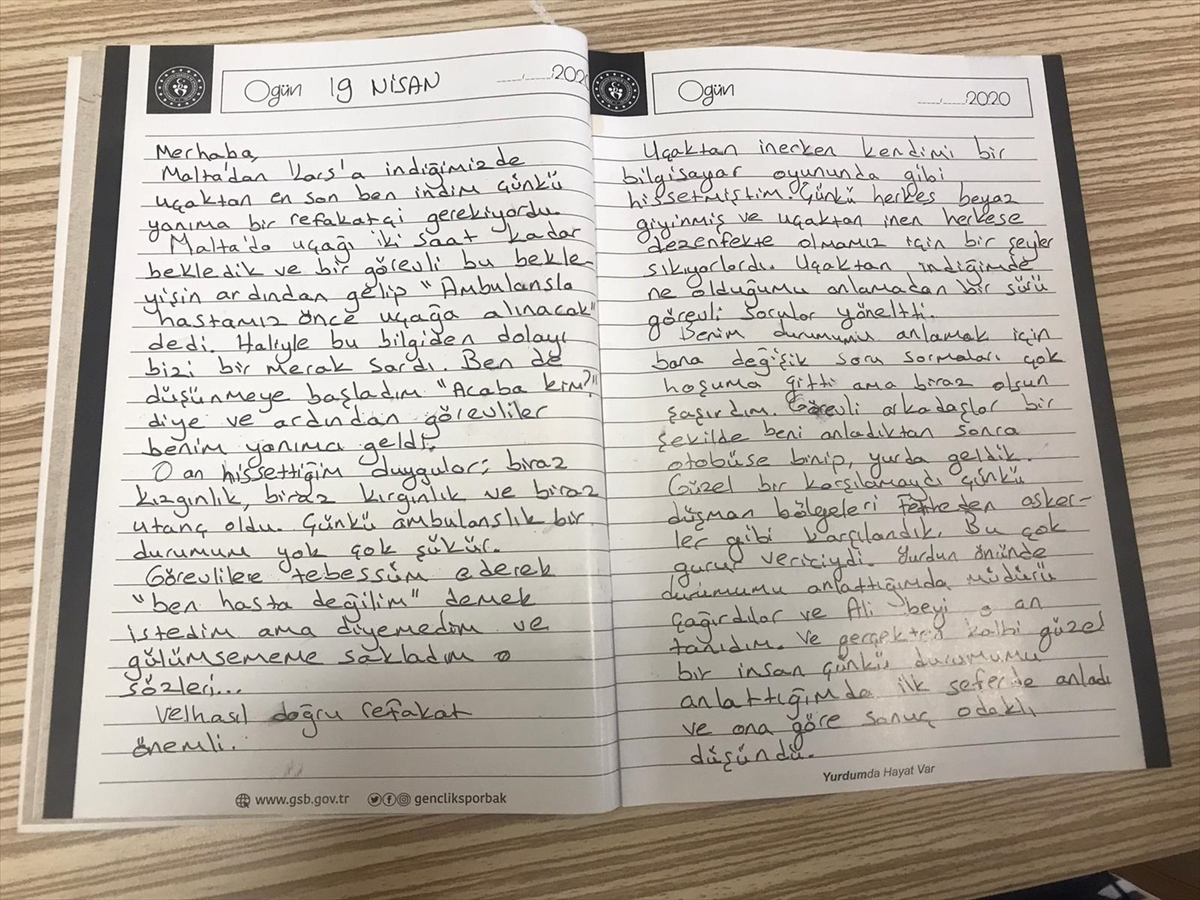 Ogün 19 NİSAN ...../...../2020
Merhaba,
Malta'dan Kars'a indiğimizde
uçaktan en son ben indim çünkü
yanıma bir refakatçi gerekiyordu.
Malta'da uçağı iki saat kadar
bekledik ve bir görevli bu bekle-
yişin ardından gelip "Ambulansla
hastamız önce uçağa alınacak"
dedi. Haliyle bu bilgiden dolayı
bizi bir merak sardı. Ben de
düşünmeye başladım "Acaba kim?"
diye ve ardından görevliler
benim yanıma geldi.
O an hissettiğim duygular; biraz
kızgınlık, biraz kırgınlık ve biraz
utanç oldu. Çünkü ambulanslık bir
durumum yok çok şükür.
Görevlilere tebessüm ederek
"ben hasta değilim" demek
istedim ama diyemedim ve
gülümsememe sakladım o
sözleri...
Velhasıl doğru refakat
önemli.
www.gsb.gov.tr gencliksporbak
Ogün ...../...../2020
Uçaktan inerken kendimi bir
bilgisayar oyununda gibi
hissetmiştim. Çünkü herkes beyaz
giyinmiş ve uçaktan inen herkese
dezenfekte olmamız için bir şeyler
sıkıyorlardı. Uçaktan indiğimde
ne olduğumu anlamadan bir sürü
görevli sorular yöneltti.
Benim durumumu anlamak için
bana değişik soru sormaları çok
hoşuma gitti ama biraz olsun
şaşırdım. Görevli arkadaşlar bir
şekilde beni anladıktan sonra
otobüse binip, yurda geldik.
Güzel bir karşılamaydı çünkü
düşman bölgeleri fetheden asker-
ler gibi karşılandık. Bu çok
gurur vericiydi. Yurdun önünde
durumumu anlattığımda müdürü
çağırdılar ve Ali beyi o an
tanıdım. Ve gerçekten kalbi güzel
bir insan çünkü durumumu
anlattığımda ilk seferde anladı
ve ona göre sonuç odaklı
düşündü.
Yurdumda Hayat Var